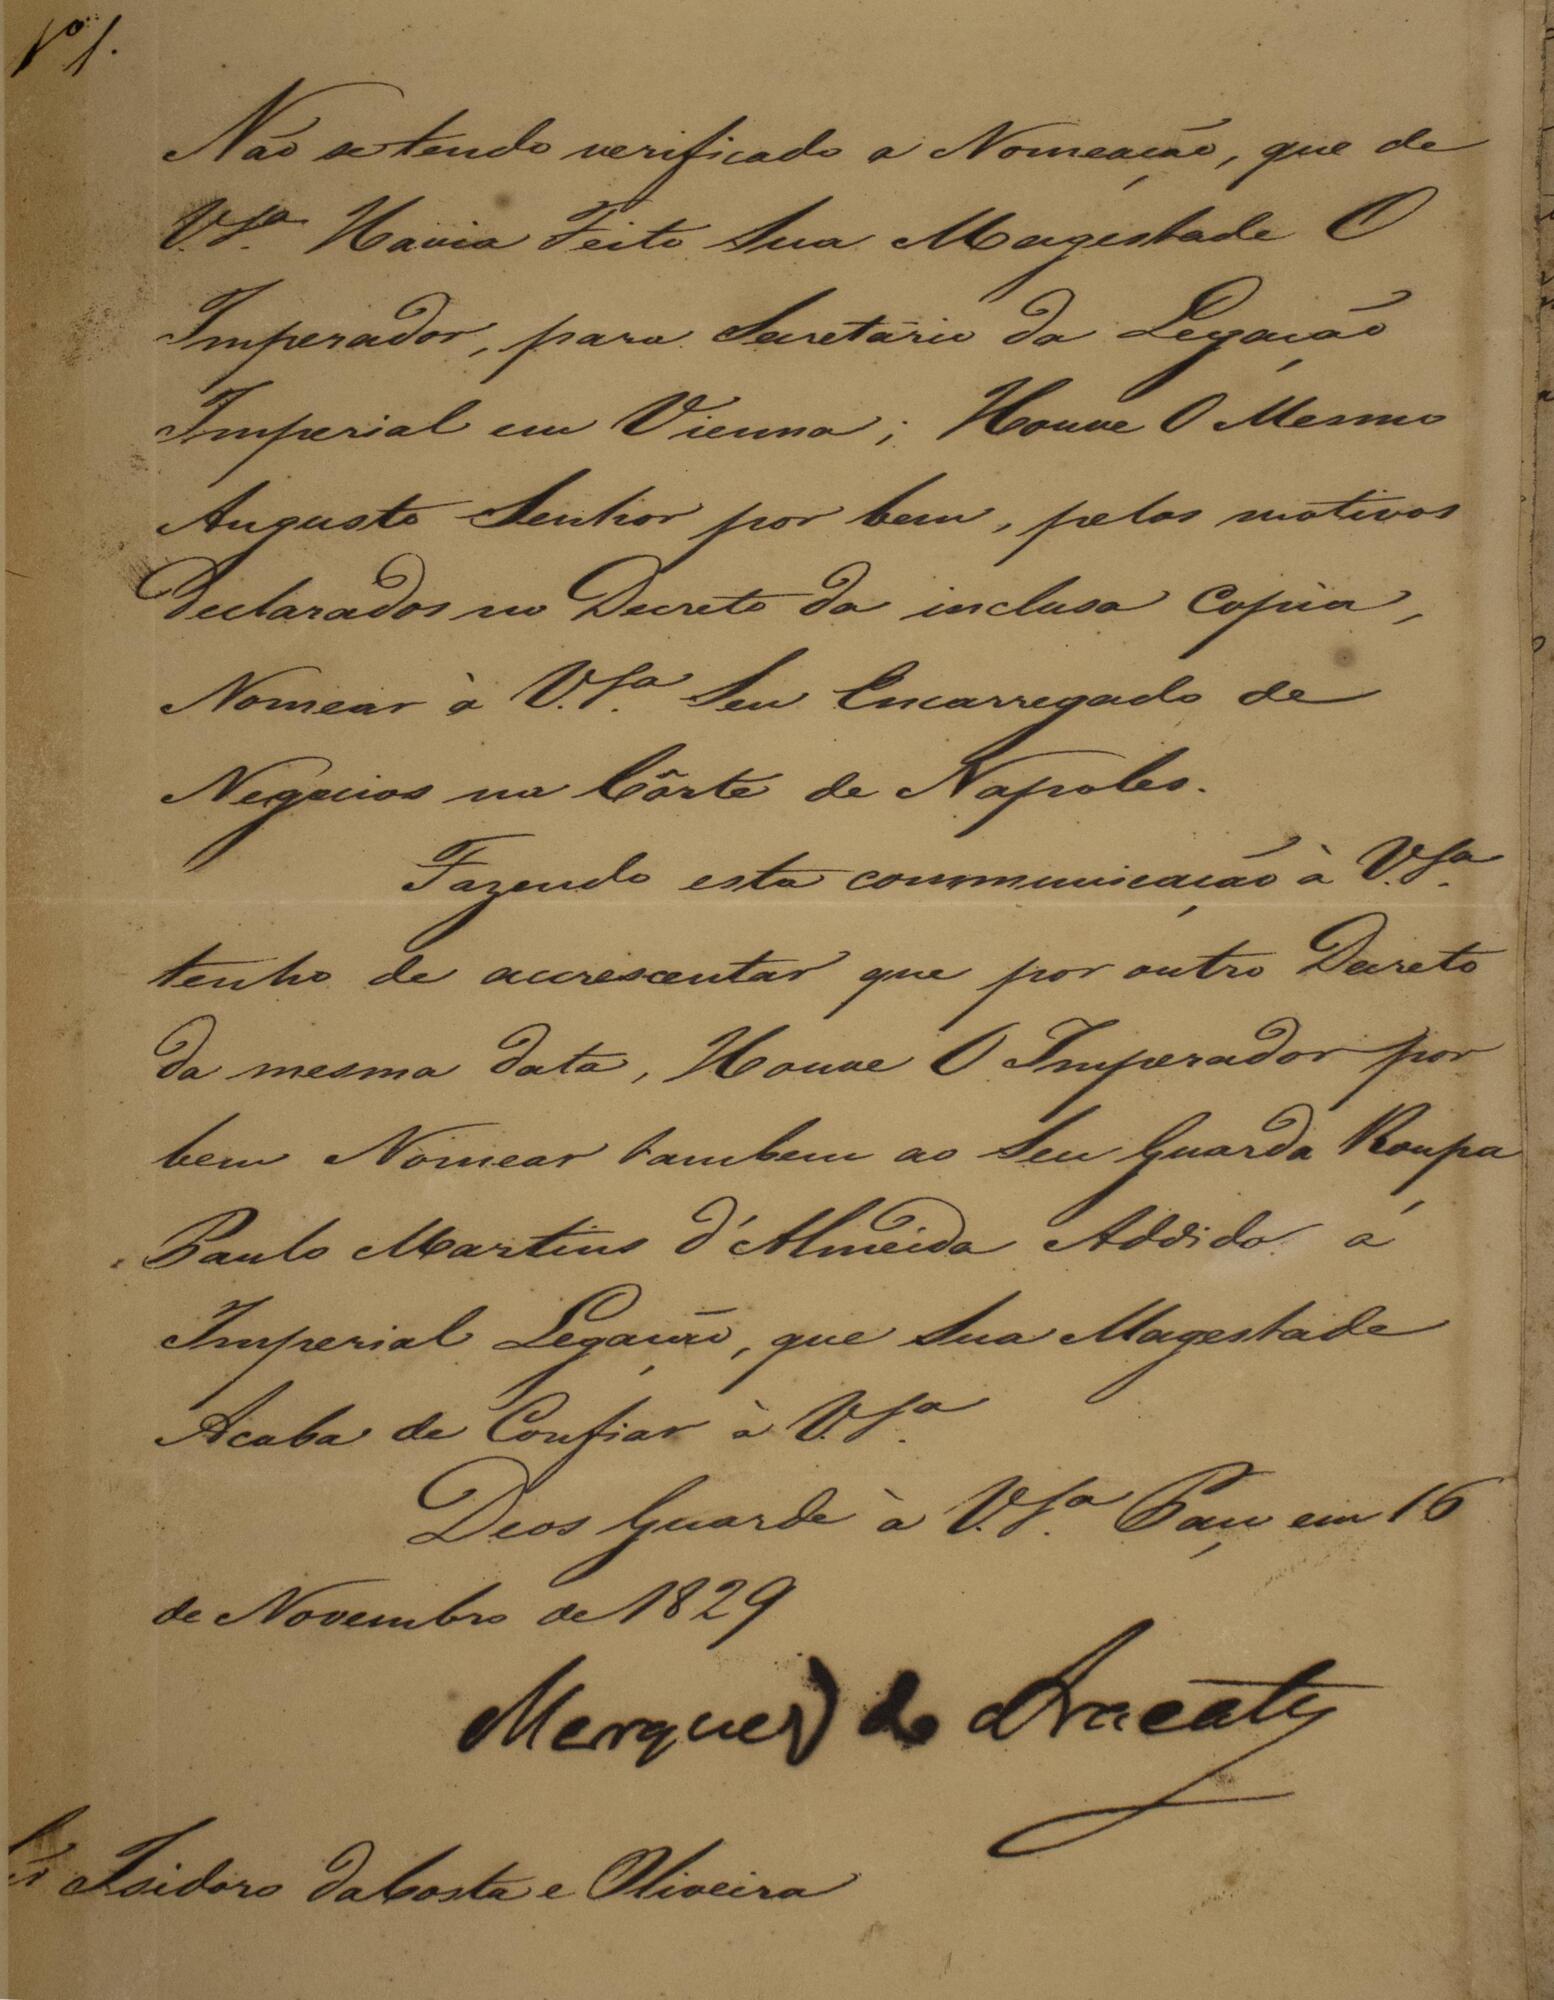 Nº 1.
Não se tendo verificado a Nomeação, que de
V. Sª. Havia Feito Sua Magestade O
Imperador, para Secretário da Legação
Imperial em Vienna; Houve O Mesmo
Augusto Senhor por bem, pelos motivos
Declarados no Decreto da inclusa Copia,
Nomear à V. Sª. Seu Encarregado de
Negocios na Côrte de Napoles.
Fazendo esta communicação à V. Sª.
tenho de accrescentar que por outro Decreto
da mesma data, Houve O Imperador por
bem Nomear tambem ao Seu Guarda Roupa
Paulo Martins d'Almeida Addido á
Imperial Legação, que Sua Magestade
Acaba de Confiar à V. Sª.
Deos Guarde à V. Sª. Paço em 16
de Novembro de 1829
Marquez de Aracaty
Isidoro da Costa e Oliveira